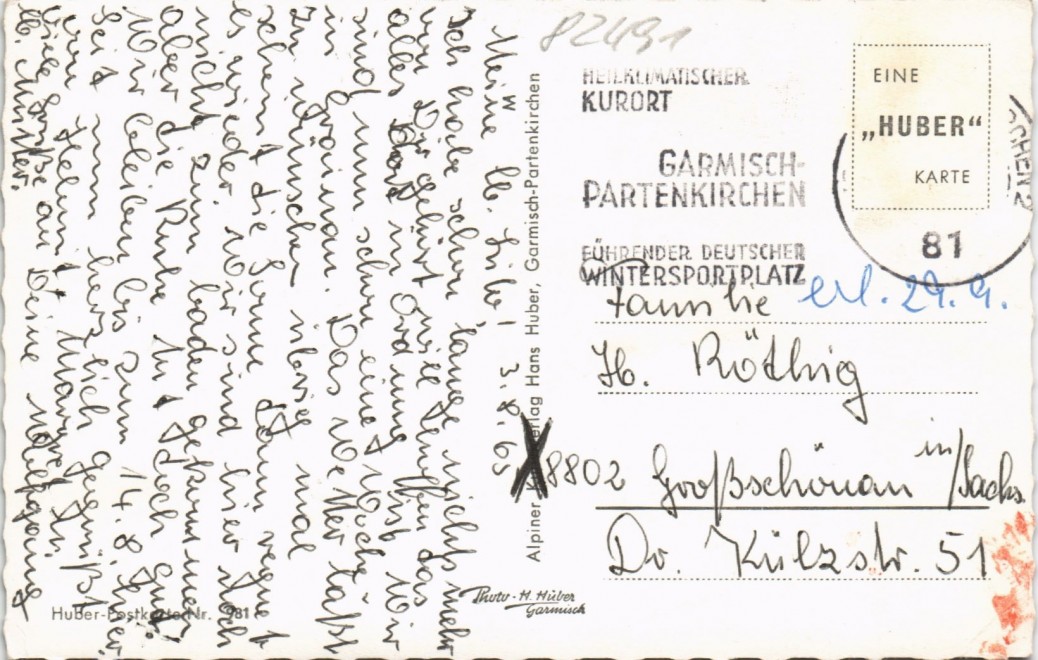 82491
HEILKLIMATISCHER
KURORT
GARMISCH-
PARTENKIRCHEN
FÜHRENDER DEUTSCHER
WINTERSPORTPLATZ
EINE
„HUBER“
KARTE
81
Familie
erl. 29. 9.
H. Röthig
8802 Großschönau in/Sachs.
Dr. Külzstr. 51
Alpiner Kunstverlag Hans Huber, Garmisch-Partenkirchen
Photo-H. Huber
Garmisch
Huber-Postkarte Nr. 981
Meine lb. 3.8.65
Ich habe schon lange nichts mehr
von Dir gehört, will hoffen das
alles dort in Ordnung ist. Wir
sind nun schon eine Woche
in Grainau. Das Wetter läßt
zu wünschen übrig mal
scheint die Sonne dann regnet
es wieder. Wir sind hier doch
nicht zum baden gekommen
aber die Ruhe tut doch gut.
Wir bleiben bis zum 14.8. hier.
Seid nun herzlich gegrüßt
von Helmut, Margot
Viele Grüße an Deine Wolfgang
lb. Mutter.